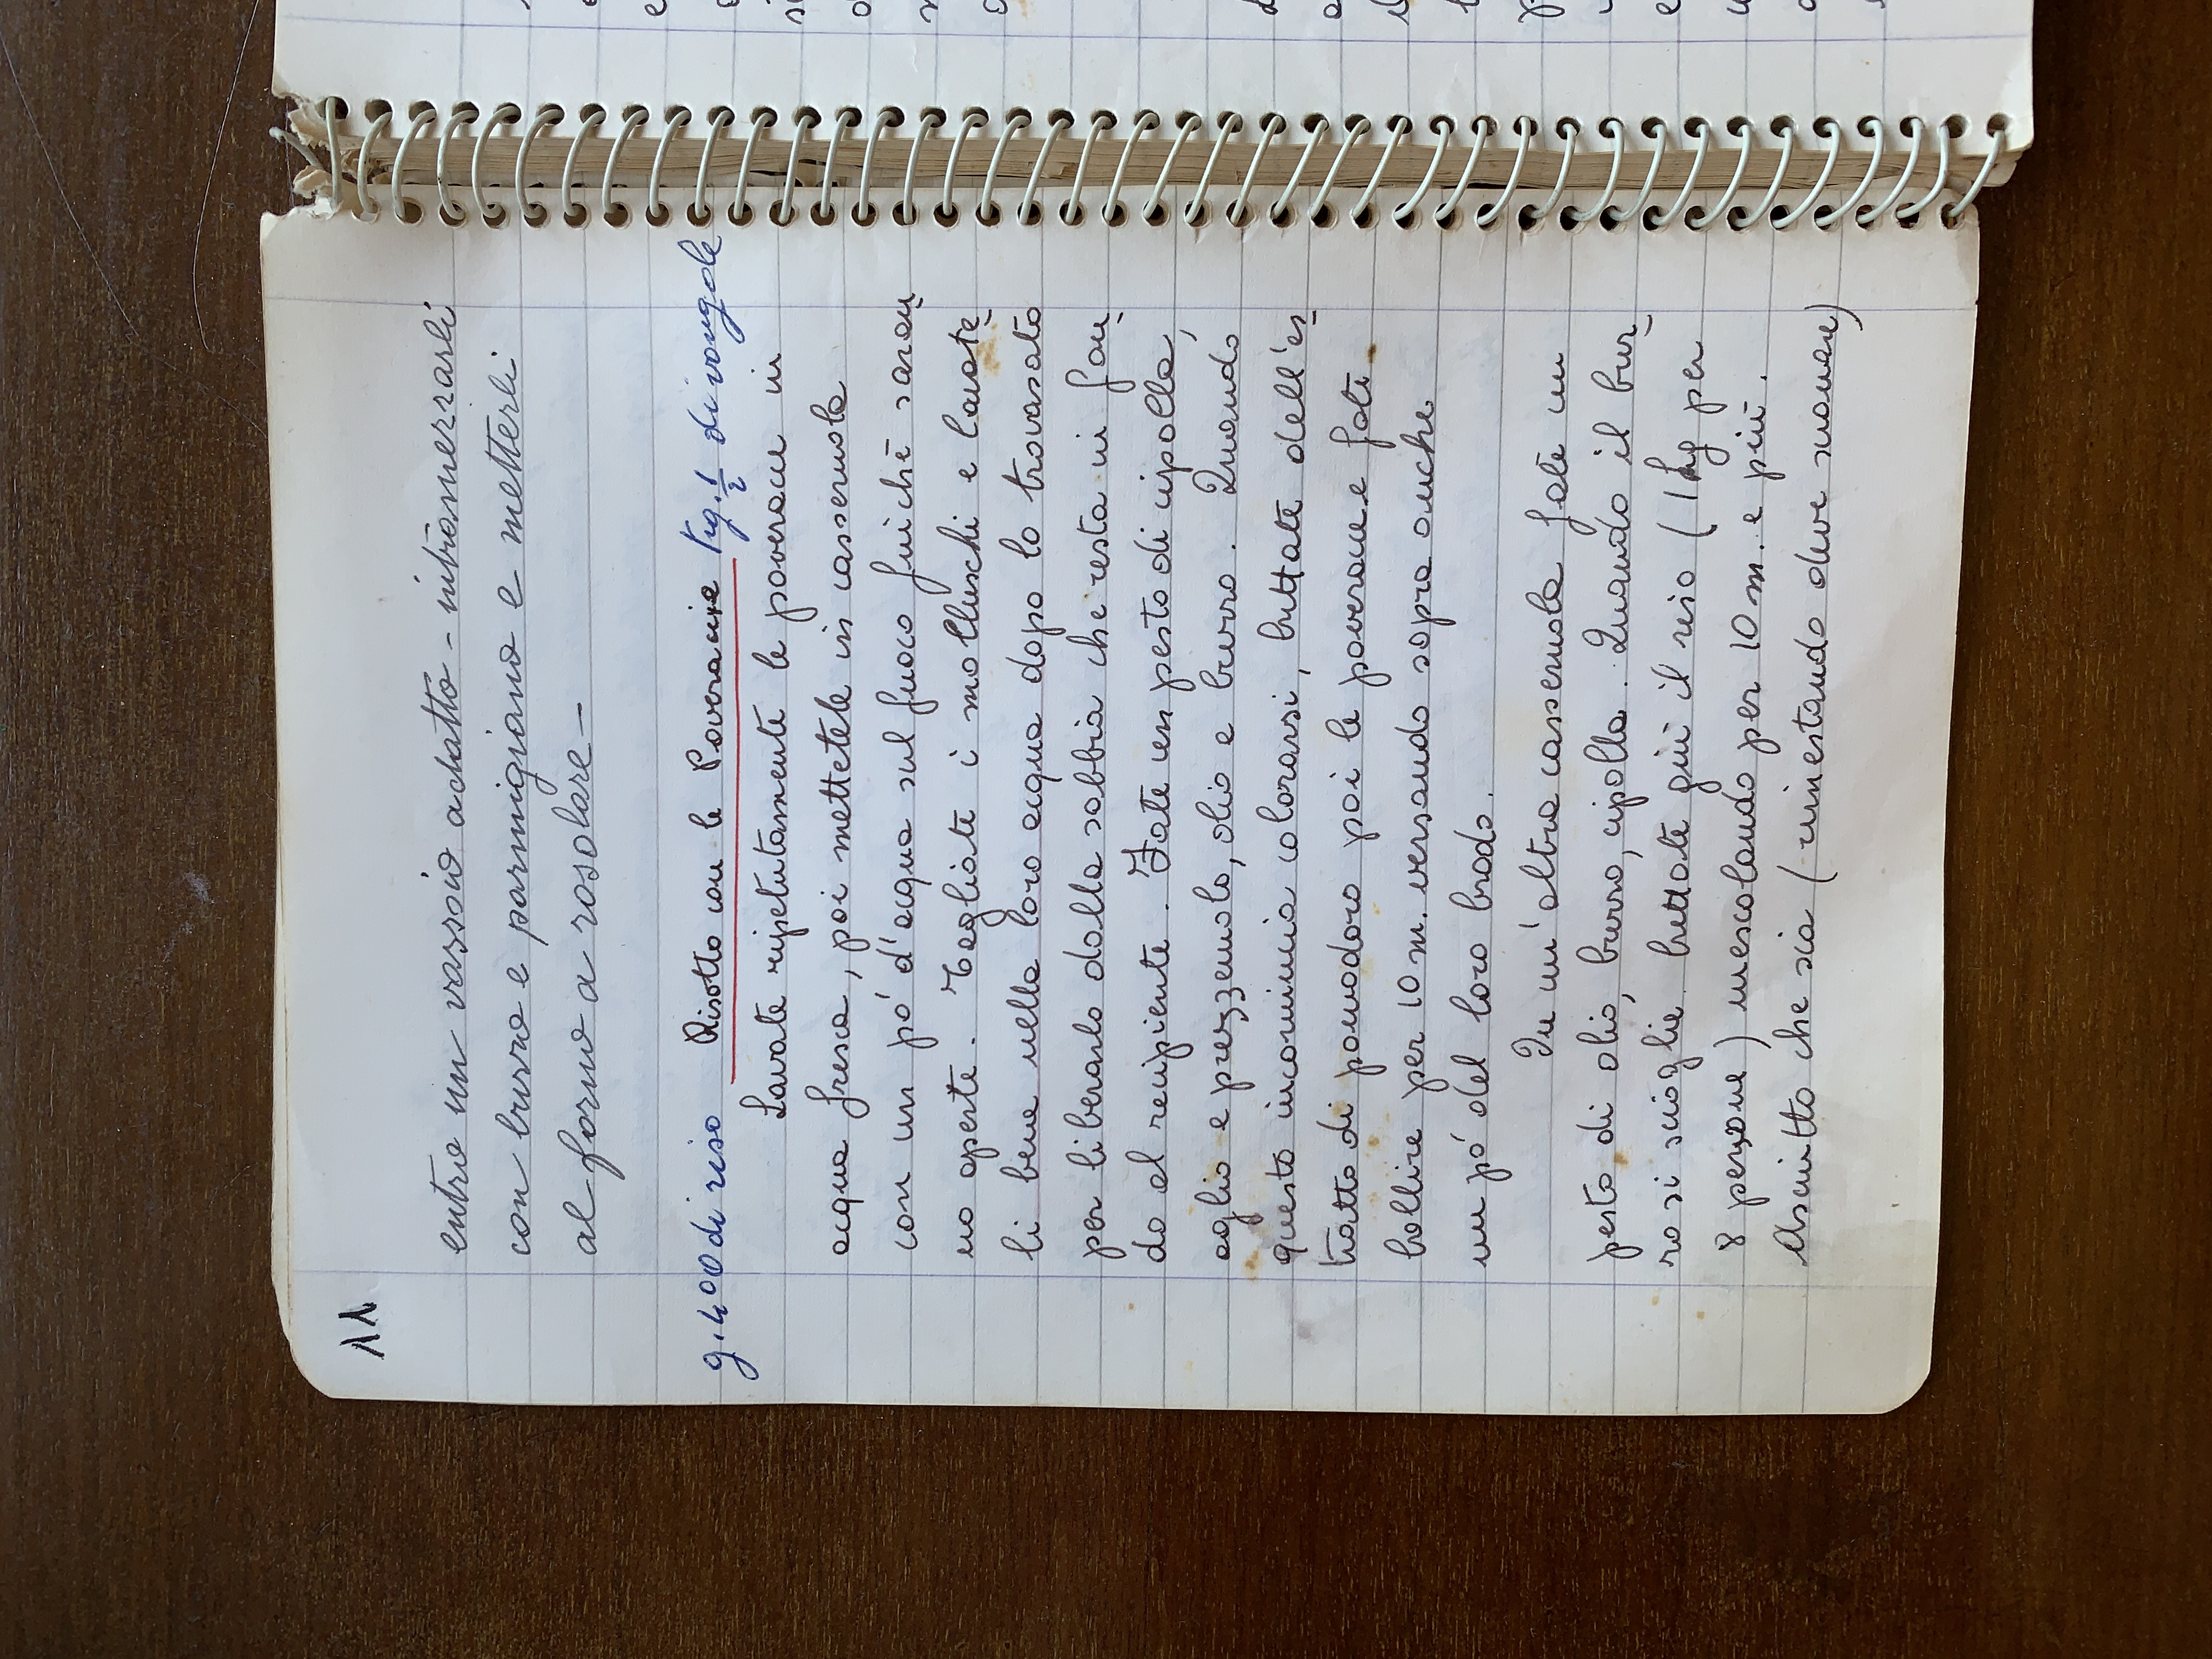 11
entro un vassoio adatto - intramezzarli
con burro e parmigiano e metterli
al forno a rosolare -
g. 400 di riso Risotto con le Poveracce Kg. 1/2 di vongole
Lavate ripetutamente le poveracce in
acqua fresca, poi mettetele in casseruola
con un pó d'acqua sul fuoco finché saran_
no aperte. Togliate i molluschi e lavate_
li bene nella loro acqua dopo lo travasato
per liberarlo dalla sabbia che resta in fon_
do al recipiente. Fate un pesto di cipolla,
aglio e prezzemolo, olio e burro. Quando
questo incomincia colorarsi, buttate dell'es_
tratto di pomodoro poi le poveracce e fate
bollire per 10 m. versando sopra anche
un pó del loro brodo.
In un'altra casseruola fate un
pesto di olio, burro, cipolla. Quando il bur_
ro si scioglie buttate giù il riso (1 kg per
8 persone) mescolando per 10 m. e più.
Asciutto che sia (rimestando deve suonare)